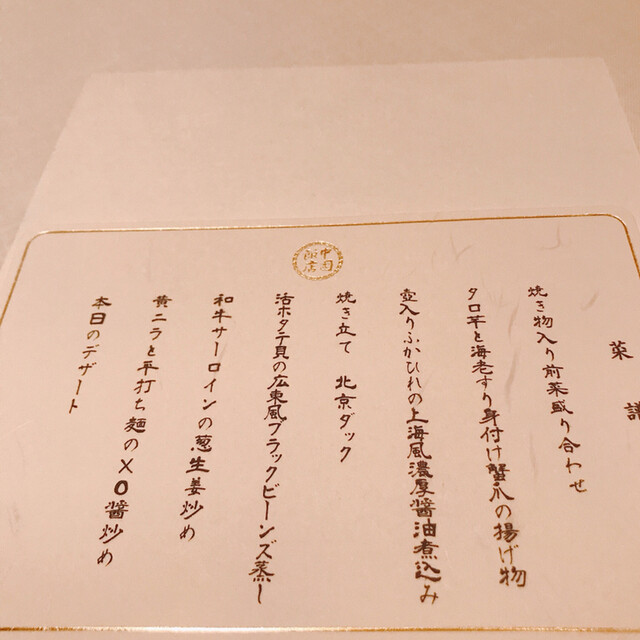 菜譜
焼き物入り前菜盛り合わせ
タロ芋と海老すり身付け蟹爪の揚げ物
壺入りふかひれの上海風濃厚醤油煮込み
焼き立て 北京ダック
活ホタテ貝の広東風ブラックビーンズ蒸し
和牛サーロインの葱生姜炒め
黄ニラと平打ち麺のXO醤炒め
本日のデザート
中国
飯店